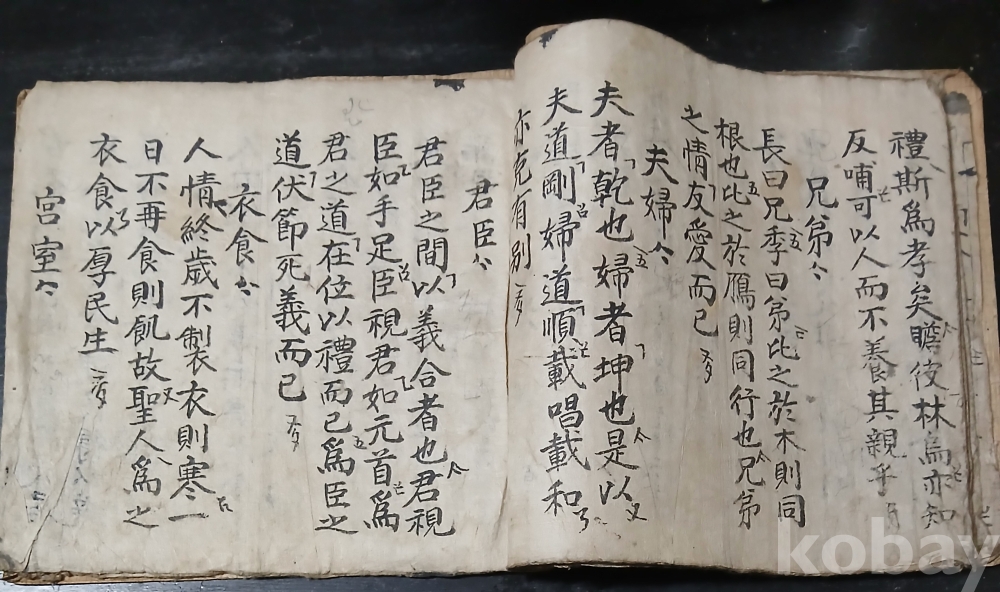 禮斯爲孝矣瞻彼林烏亦知
反哺可以人而不養其親乎
兄弟
長曰兄季曰弟比之於木則同
根也比之於鴈則同行也兄弟
之情友愛而已
夫婦
夫者乾也婦者坤也是以
夫道剛婦道順載唱載和
亦克有別
君臣
君臣之間以義合者也君視
臣如手足臣視君如元首爲
君之道在位以禮而已爲臣之
道伏節死義而已
衣食
人情終歲不製衣則寒一
日不再食則飢故聖人爲之
衣食以厚民生
宮室
kobay